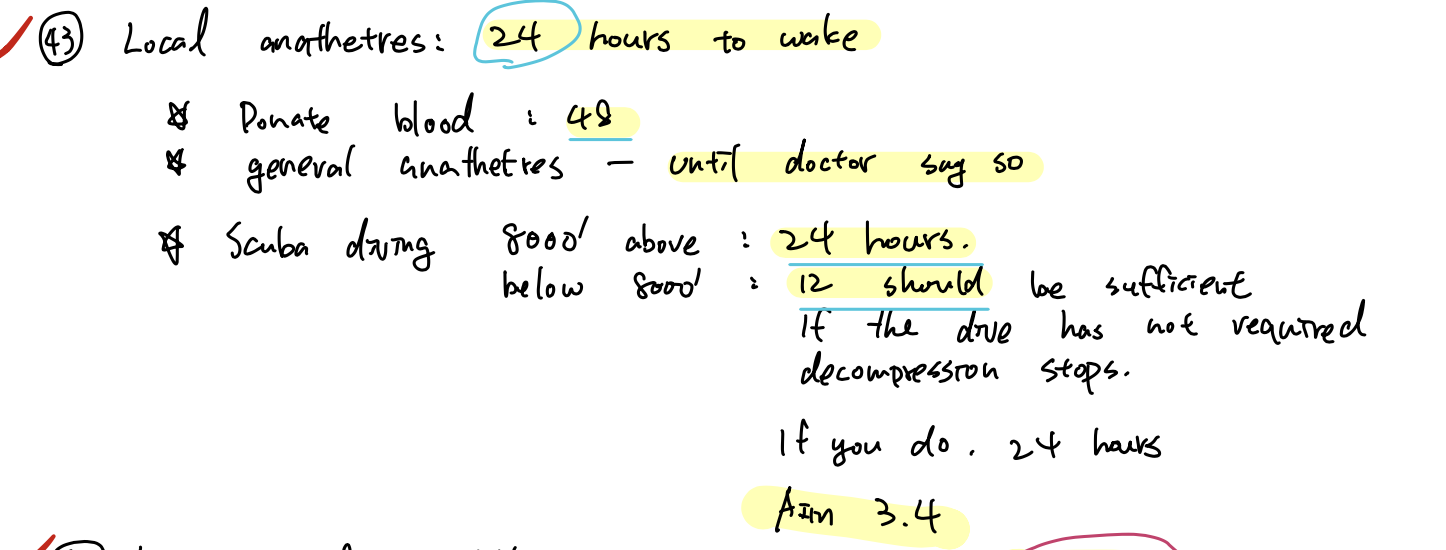 43 Local anathetres: 24 hours to wake
Donate blood : 48
general anathetres – until doctor say so
Scuba diving 8000' above : 24 hours.
below 8000' : 12 should be sufficient
If the dive has not required
decompression stops.
If you do. 24 hours
AIM 3.4